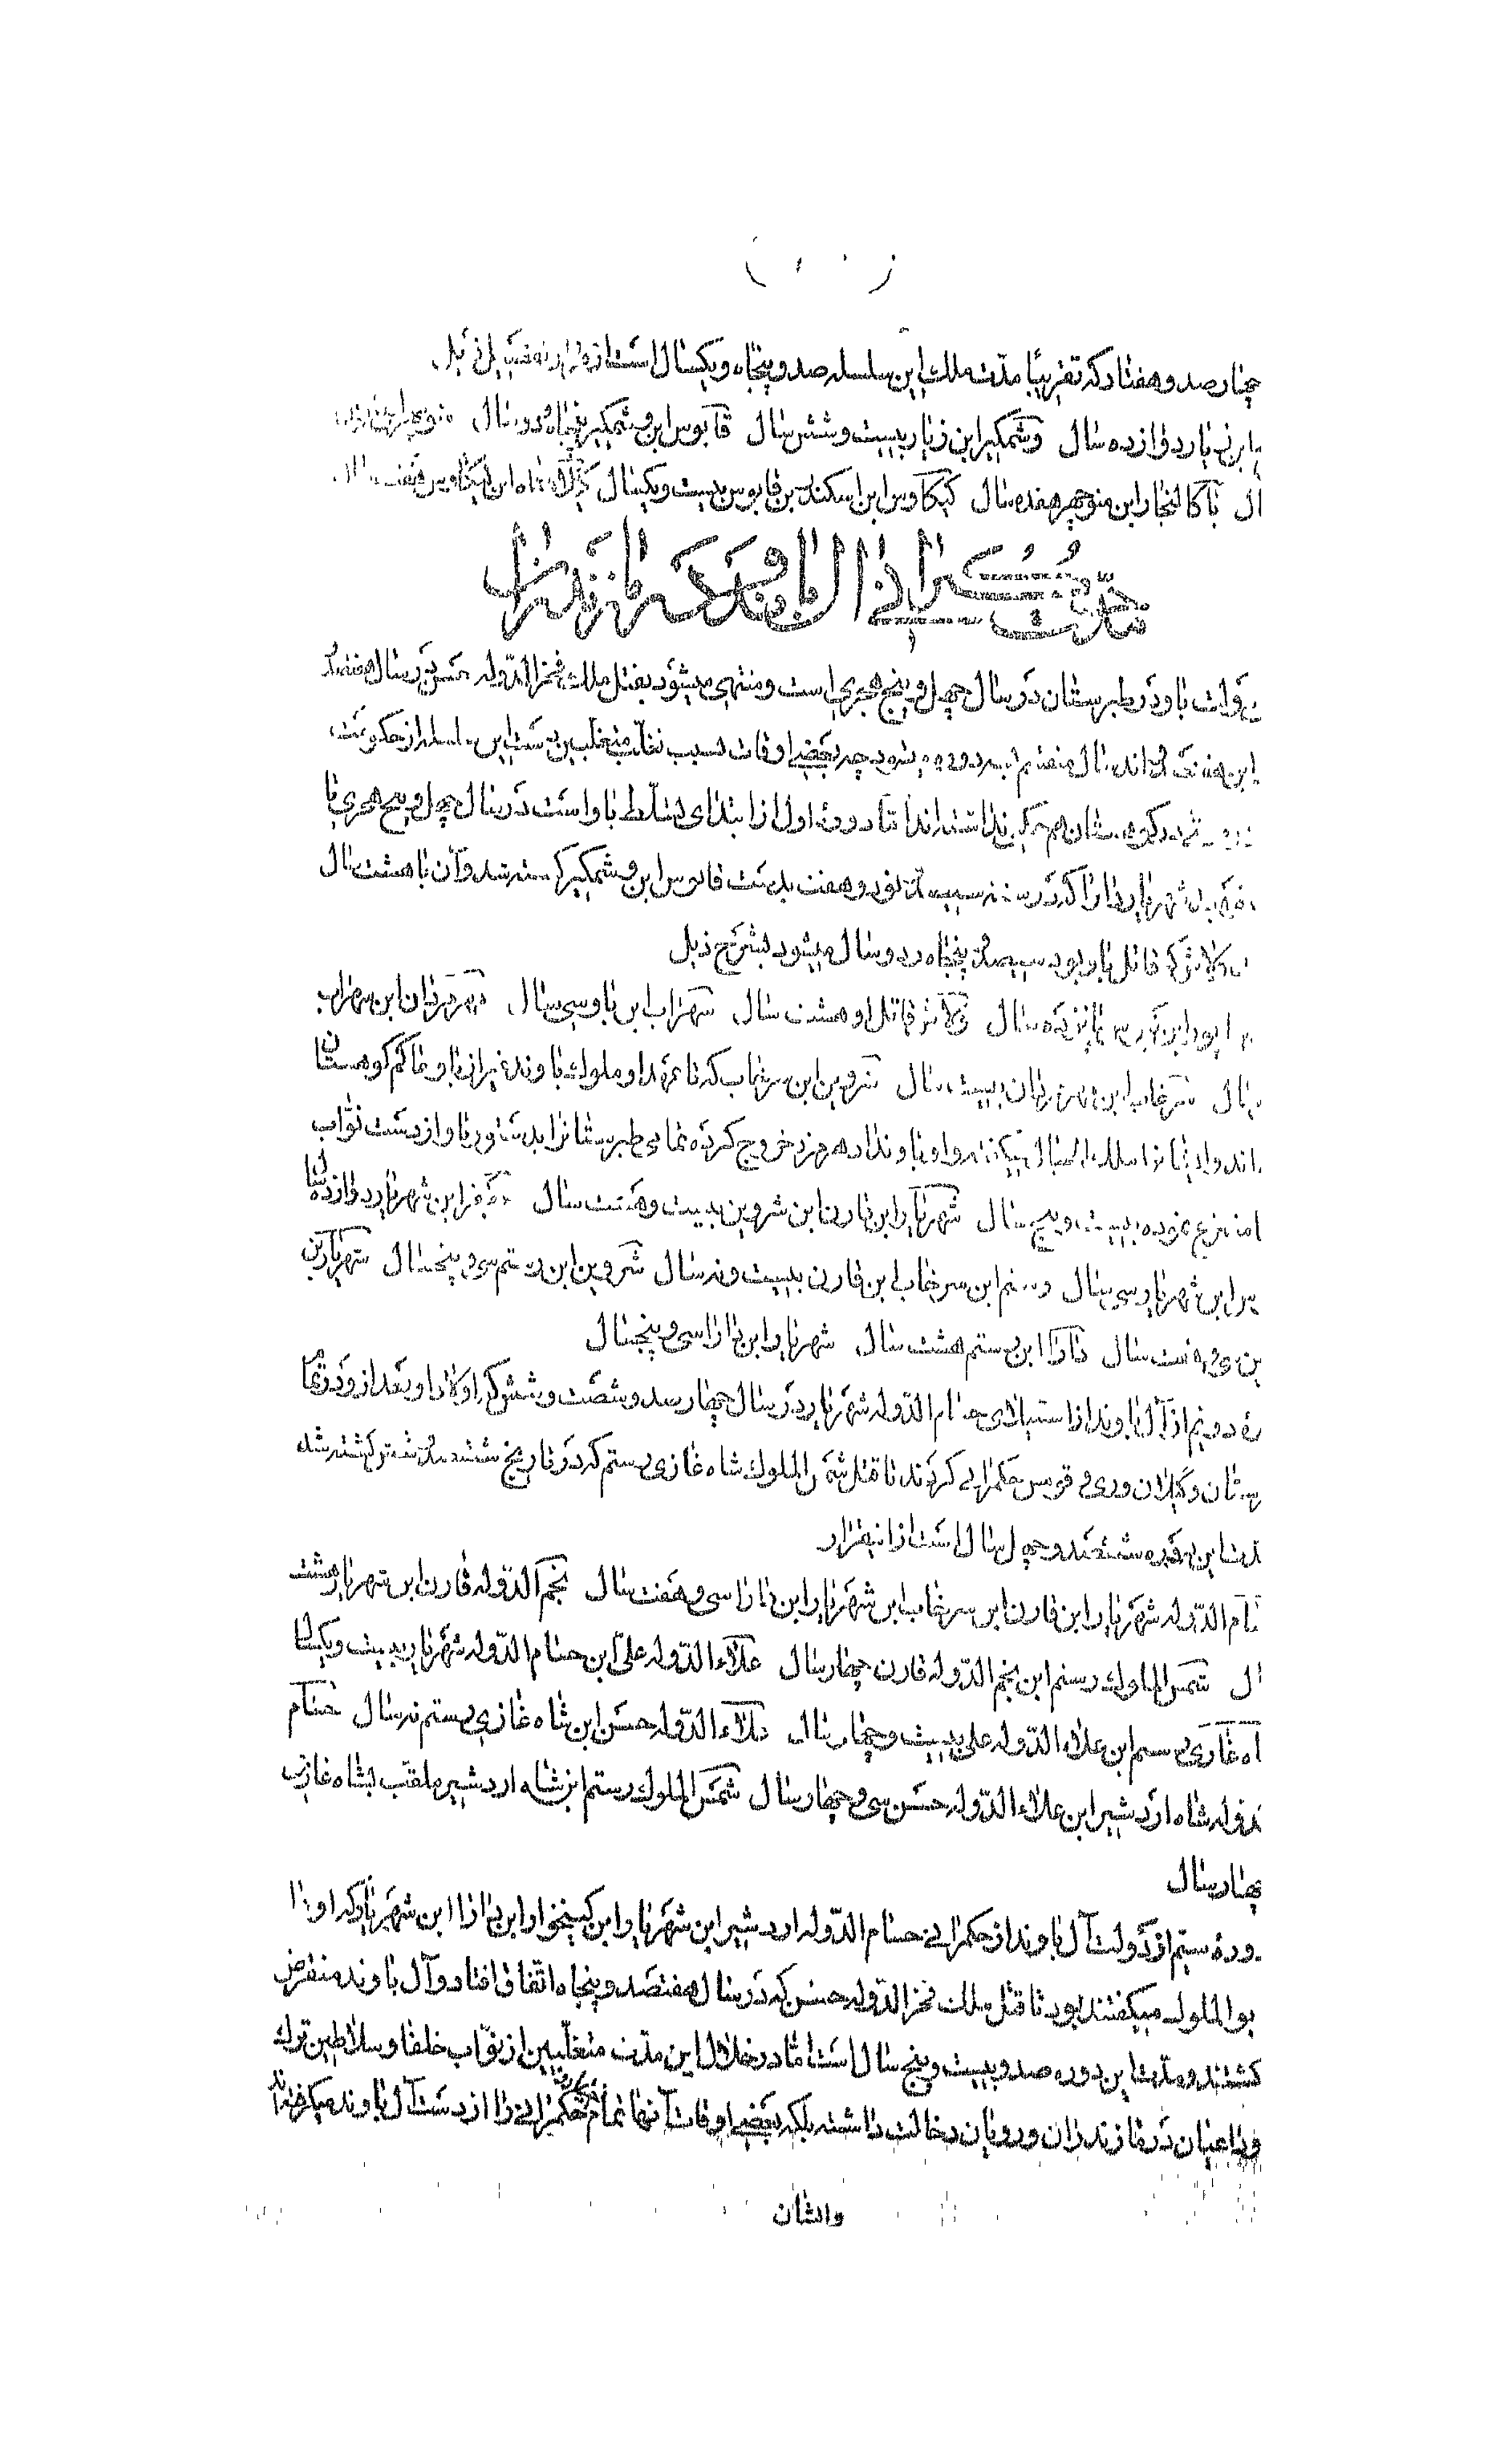 چهارصد و هفتاد که تقریبًا مدّت ملك این سلسله صد و پنجاه و یکسال است از قرار تفصیل ذیل
ابن زیار دوازده سال وشمکیر ابن زیار بیست و شش سال قابوس ابن وشمکیر پنجاه و دو سال منوچهر ابن
ال باکالنجار ابن منوچهر هفده سال کیکاوس ابن اسکندر بن قابوس بیست و یکسال کیلان شاه ابن کیکاوس هفت سال
مدّت حکمرانی ال باوند در مازندران
دولت باو در طبرستان در سال چهل و پنج هجری است و منتهی میشود بقتل ملك فخر الدّوله حسن در سال هفتصد
این هفتصد اند سال منقسم بسه دوره میشود چه بعضی اوقات بسبب تغلّب متغلّبین دست این سلسله از حکومت
در کوهستان هم حکم نداشته‌اند امّا دورهٔ اول از ابتدای تسلّط باو است در سال چهل و پنج هجری تا
شهریار دارا که در سنه سیصد و نود و هفت بدست قابوس ابن وشمکیر کشته شد و آن با هشت سال
ولاش که قاتل باو بود سیصد و پنجاه و دو سال میشود بشرح ذیل
پانزده سال ولاش قاتل او هشت سال سهراب ابن باو سی سال مهرمردان ابن سهراب
سال سرخاب ابن مهرمردان بیست سال شروین ابن سرخاب که تا عهد او ملوك باوند غیر از باو حاکم کوهستان
اند و ایشانرا ملك الجبال میکفتند و او با ونداد هرمزد خروج کرده تمامی طبرستانرا بدستور باو از دست نوّاب
نزع نموده بیست و پنج سال شهریار ابن قارن ابن شروین بیست و هشت سال جعفر ابن شهریار دوازده سال
ابن شهریار سی سال رستم ابن سرخاب ابن قارن بیست و نه سال شروین ابن رستم سی و پنجسال شهریار بن
سی و هفت سال دارا ابن رستم هشت سال شهریار ابن دارا سی و پنجسال
رهٔ دویم از آل باوند از استیلای حسام الدّوله شهریار در سال چهارصد و شصت و شش که اولاد او بعد از و در تمام
رستان و کیلان و ری و قومس حکمرانی کردند تا قتل شمس الملوك شاه غازی رستم که در تاریخ ششصد و شش کشته شد
مدت این دوره ششصد و چهل سال است از اینقرار
سام الدّوله شهریار ابن قارن ابن سرخاب ابن شهریار ابن دارا سی و هفت سال نجم الدّوله قارن ابن شهریار هشت
ال شمس الملوك رستم ابن نجم الدّوله قارن چهار سال علاء الدّوله علی ابن حسام الدّوله شهریار بیست و یکسال
اه غازی رستم ابن علاء الدّوله علی بیست و چهار سال علاء الدّوله حسن ابن شاه غازی رستم نه سال حسام
لدوله شاه اردشیر ابن علاء الدّوله حسن سی و چهار سال شمس الملوك رستم ابن شاه اردشیر ملقب بشاه غازی
چهار سال
ورهٔ سیّم از دولت آل باوند از حکمرانی حسام الدّوله اردشیر ابن شهریار ابن کینخوار ابن دارا ابن شهریار که او را
بو الملوك میکفتند بود تا قتل ملك فخر الدّوله حسن که در سال هفتصد و پنجاه اتّفاق افتاد و آل باوند منقرض
کشتند و مدّت این دوره صد و بیست و پنج سال است امّا در خلال این مدّت متغلّبین از نوّاب خلفا و سلاطین ترك
و داعیان در مازندران و رویان دخالت داشته بلکه بعضی اوقات آنها تمام حکمرانی را از دست آل باوند میکرفته‌اند
وایشان